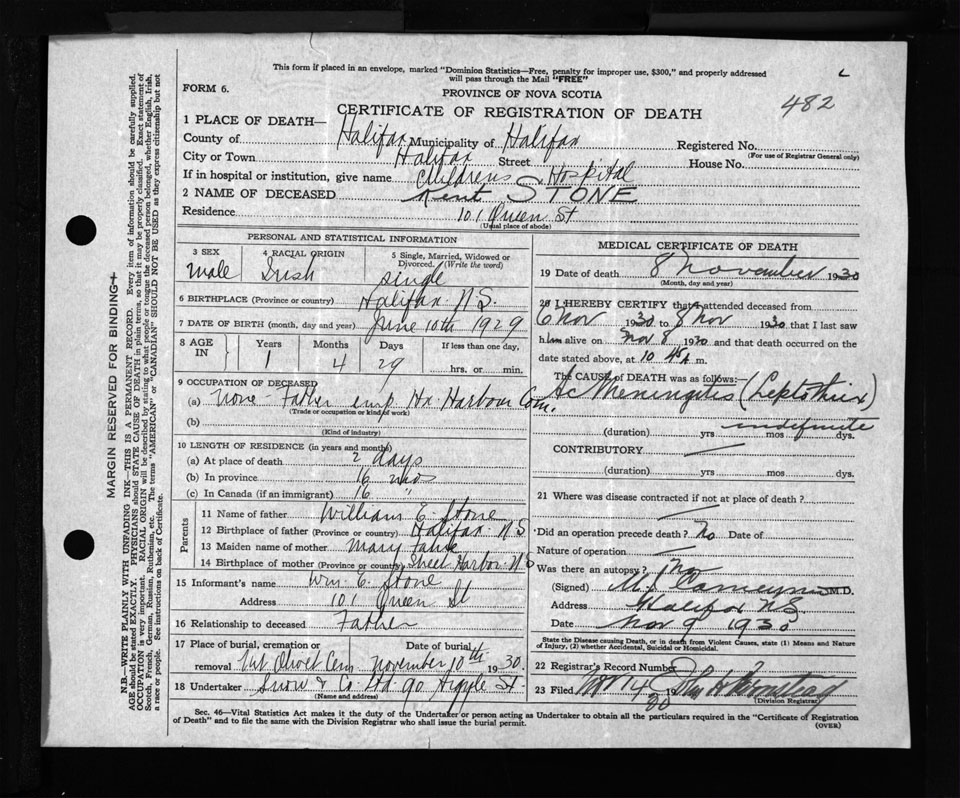 This form if placed in an envelope, marked "Dominion Statistics—Free, penalty for improper use, $300," and properly addressed
will pass through the Mail "FREE"
FORM 6.
PROVINCE OF NOVA SCOTIA
482
CERTIFICATE OF REGISTRATION OF DEATH
1 PLACE OF DEATH—
County of Halifax Municipality of Halifax Registered No.
(For use of Registrar General only)
City or Town Halifax Street House No.
If in hospital or institution, give name Childrens Hospital
2 NAME OF DECEASED Kent STONE
Residence 101 Queen St
(Usual place of abode)
PERSONAL AND STATISTICAL INFORMATION
3 SEX 4 RACIAL ORIGIN 5 Single, Married, Widowed or
Divorced. (Write the word)
male Irish single
6 BIRTHPLACE (Province or country) Halifax N.S.
7 DATE OF BIRTH (month, day and year) June 10th 1929
8 AGE IN Years Months Days If less than one day,
1 4 29 hrs. or min.
9 OCCUPATION OF DECEASED
(a) None - Father emp Hx. Harbour Com.
(Trade or occupation or kind of work)
(b)
(Kind of industry)
10 LENGTH OF RESIDENCE (in years and months)
(a) At place of death 2 days
(b) In province 16 mos
(c) In Canada (if an immigrant) 16 "
Parents
11 Name of father William E. Stone
12 Birthplace of father (Province or country) Halifax N.S
13 Maiden name of mother Mary
14 Birthplace of mother (Province or country) Sheet Harbor N S
15 Informant's name Wm. E. Stone
Address 101 Queen St
16 Relationship to deceased Father
17 Place of burial, cremation or Date of burial,
removal Mt Olivet Cem November 10th 1930.
18 Undertaker Snow & Co. Ltd. 90 Argyle St
(Name and address)
MEDICAL CERTIFICATE OF DEATH
19 Date of death 8 November 1930
(Month, day and year)
20 I HEREBY CERTIFY that I attended deceased from
6 Nov 1930 to 8 Nov 1930 that I last saw
him alive on Nov 8 1930 and that death occurred on the
date stated above, at 10 45 A m.
The CAUSE of DEATH was as follows:—
Ac Meningitis (Leptothrix)
indefinite
(duration) yrs mos dys.
CONTRIBUTORY
(duration) yrs. mos. dys.
21 Where was disease contracted if not at place of death?
Did an operation precede death? No Date of
Nature of operation
Was there an autopsy? No
(Signed) M.D.
Address Halifax NS
Date Nov 9 1930
State the Disease causing Death, or in death from Violent Causes, state (1) Means and Nature
of Injury, (2) whether Accidental, Suicidal or Homicidal.
22 Registrar's Record Number
23 Filed Nov 14 1930
(Division Registrar)
Sec. 46—Vital Statistics Act makes it the duty of the Undertaker or person acting as Undertaker to obtain all the particulars required in the "Certificate of Registration
of Death" and to file the same with the Division Registrar who shall issue the burial permit.
(OVER)
MARGIN RESERVED FOR BINDING
N.B.—WRITE PLAINLY WITH UNFADING INK—THIS IS A PERMANENT RECORD. Every item of information should be carefully supplied.
AGE should be stated EXACTLY. PHYSICIANS should STATE CAUSE OF DEATH in plain terms, so that it may be properly classified. Exact statement of
OCCUPATION is very important. RACIAL ORIGIN will be described by stating to what people or tongue the deceased person belonged, whether English, Irish,
Scotch, French, German, Russian, Ruthenian, etc. The terms "AMERICAN" or "CANADIAN" SHOULD NOT BE USED as they express citizenship but not
a race or people. See instructions on back of Certificate.